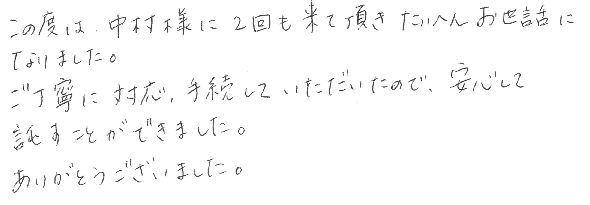 この度は、中村様に2回も来て頂きたいへんお世話に
なりました。
ご丁寧に対応、手続していただいたので、安心して
託すことができました。
ありがとうございました。